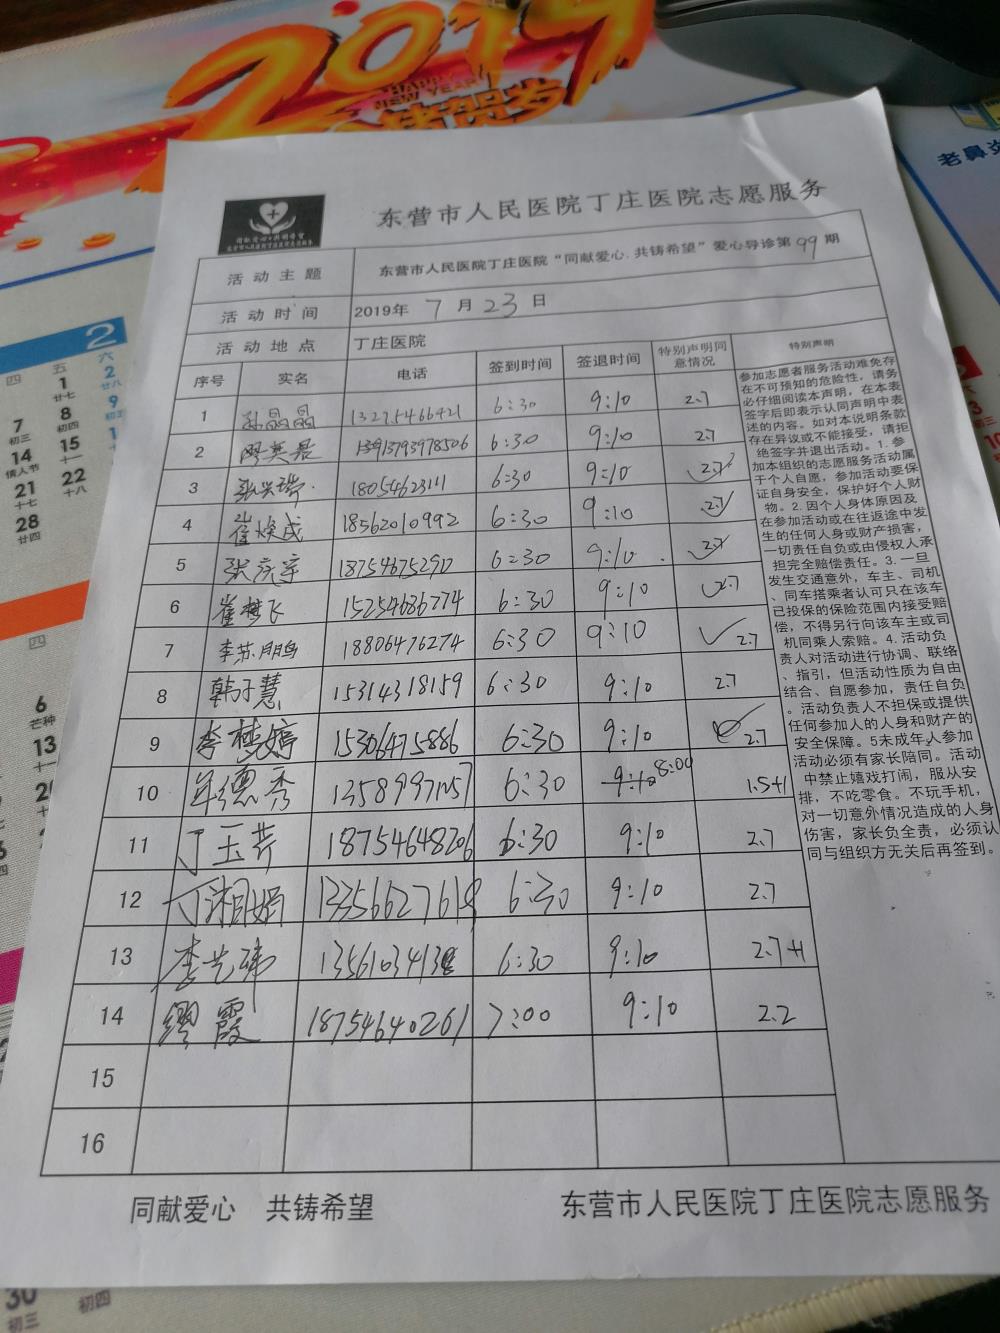 2019
HAPPY
NEW YEAR
老鼻炎
同献爱心·共铸希望
东营市人民医院丁庄医院志愿服务
东营市人民医院丁庄医院志愿服务
活动主题 东营市人民医院丁庄医院“同献爱心.共铸希望”爱心导诊第99期
活动时间 2019年 7 月 23 日
活动地点 丁庄医院
序号 实名 电话 签到时间 签退时间 特别声明同意情况 特别声明
1 孙晶晶 13275466421 6:30 9:10 2.7
2 6:30 9:10 2.7
3 18054623111 6:30 9:10 2.7
4 崔焕成 18562010992 6:30 9:10 2.7
5 张庆宇 18754675290 6:30 9:10 2.7
6 崔梦飞 15254686774 6:30 9:10 2.7
7 李苏鹏 18806476274 6:30 9:10 2.7
8 韩子慧 15314318159 6:30 9:10 2.7
9 李桂婷 15306475886 6:30 9:10 2.7
10 德秀 6:30 9:10 8:00 1.5+1
11 丁玉芹 18754648206 6:30 9:10 2.7
12 6:30 9:10 2.7
13 李艺玮 6:30 9:10 2.7+1
14 缪霞 18754640261 7:00 9:10 2.2
15
16
参加志愿者服务活动难免存
在不可预知的危险性，请务
必仔细阅读本声明，在本表
签字后即表示认同声明中表
述的内容。如对本说明条款
存在异议或不能接受，请拒
绝签字并退出活动。1. 参
加本组织的志愿服务活动属
于个人自愿，参加活动要保
证自身安全，保护好个人财
物。2. 因个人身体原因及
在参加活动或在往返途中发
生的任何人身或财产损害，
一切责任自负或由侵权人承
担完全赔偿责任。3. 一旦
发生交通意外，车主、司机
、同车搭乘者认可只在该车
已投保的保险范围内接受赔
偿，不得另行向该车主或司
机同乘人索赔。4. 活动负
责人对活动进行协调、联络
、指引，但活动性质为自由
结合、自愿参加，责任自负
。活动负责人不担保或提供
任何参加人的人身和财产的
安全保障。5未成年人参加
活动必须有家长陪同。活动
中禁止嬉戏打闹，服从安
排，不吃零食。不玩手机，
对一切意外情况造成的人身
伤害，家长负全责，必须认
同与组织方无关后再签到。
同献爱心 共铸希望 东营市人民医院丁庄医院志愿服务
2
四 五 六
1 2
廿七 廿八
7 8 9
初三 初四 初五
14 15
情人节 十一
21 22
十七 十八
28
廿四
四
6
芒种
13
十一
30
初三 初四